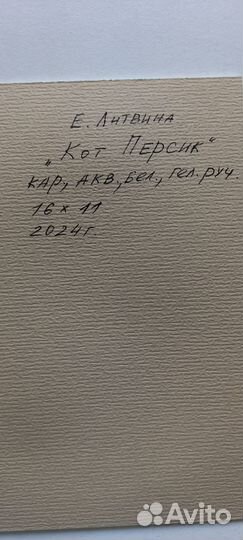 Е. Литвина
„Кот Персик“
кар, акв, бел., гел. руч.
16 х 11
2024г.
Avito